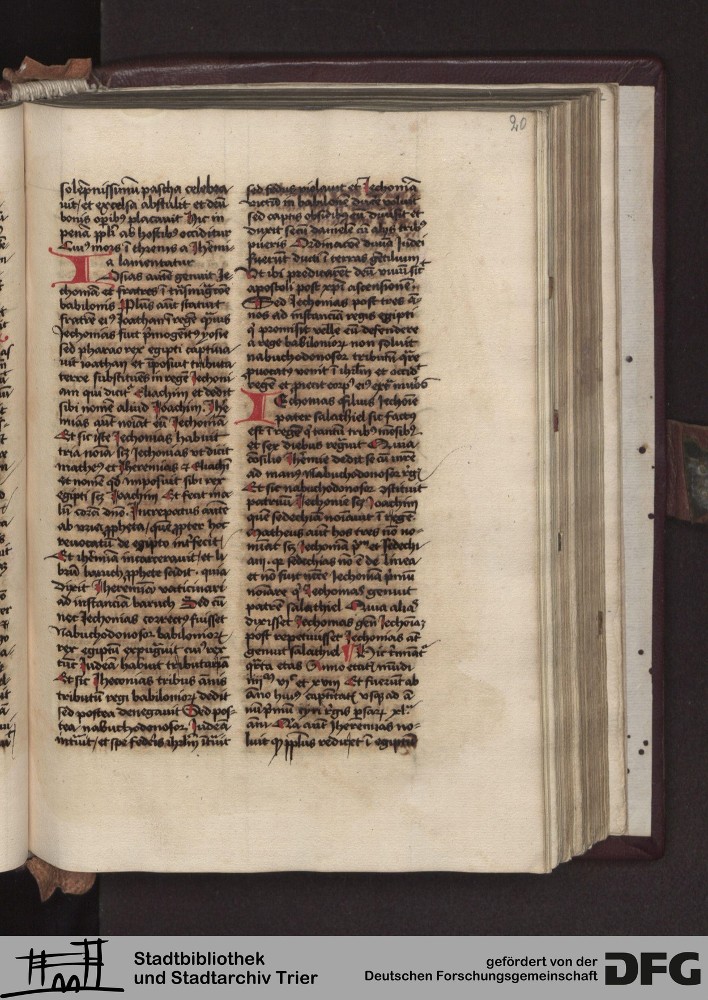 20
solēpnissimū pascha celebra
uit/ et excelsa abstulit et deū
bonis oꝑibꝰ placauit hic in
pena ppli ab hostibꝰ occiditur
Cuiꝰ mors ī threnis a Iheremi
a lamentatur
Iosias autē genuit Je
choniā et fratres ī trāsmigratōe
babilonis Pplus aūt statuit
fratrē eiꝰ Joathan ī regē
Jechonias fuit pͥmogenitꝰ yosie
sed pharao rex egipti captiua
uit ioathan et īposuit tributa
terre substituēs in regē Jechoni
am qui dicitꝰ Eliachim et dedit
sibi nomē aliud Joachim Ihe
mias aūt noīat eū Jechoniā
Et sic iste Jechonias habuit
tria noīa scꝫ Jechonias vt dicit
matheꝰ et Jheremias et Eliachī
et nomē qd imposuit sibi rex
egipti scꝫ Joachim Et fecit ma
lū corā dn̄o Increpatus autē
ab vria ꝓpheta/ quē ꝓpter hoc
reuocatū de egipto interfecit/
Et iheremiā incarcerauit/ et li
brū baruch ꝓphete scidit quia
dixit Jheremiam vaticinari
ad instanciā baruch Sed cū
nec Jechonias correctꝰ fuisset
Nabuchodonosor babilonioꝝ
rex egiptū expugnuit cuiꝰ rex
tūc Judeā habuit tributariā
Et sic Jheconias tribus ānis
tributū regi babilonioꝝ dedit
sed postea denegauit Sed pos
tea nabuchodonosor Judeā
intuit/ et spe federis ihrlm̄ ītuit
sed fedus violauit et Jechoniā
victū in babilonē ducere voluit
sed captis obsidibꝰ eū dimisit et
duxit secū daniele cū alijs tribꝰ
pueris Ordinacōe diuīa Judei
fuerūt ducti ī terras gentilium
Vt ibi predicarēt deū viuū sic
apostoli post xpī ascensionē
Sed Jechonias post tres ā
nos ad instanciā regis egipti
qͥ promisit velle eū defendere
a rege babilonioꝝ non soluit
nabuchodonosor tributū qͣre
ꝓuocatꝰ venit ī ihrlm̄ et occid
regē et ꝓiecit corpꝰ eiꝰ extͣ muros
Iechonias filius Jechonie
pater salathiel sic factꝰ
est ī regē qͥ tantū tribꝰ mēsibꝰ
et sex diebus regnuit Quia
cōsilio Jheremie dedit se cū mr̄e
ad manꝰ Nabuchodonosor rͤgꝭ
Et sic nabuchodonosor ꝯstituit
patruū Jechonie scꝫ Joachim
quē sedechiā noīauit ī regē
Matheus aūt hos tres nō no
mīat scꝫ Jechoniā pͥmū et sedechi
am qͥ sedechias nō ē de linea
et nō fuit nͨcͤ Jechoniā pͥmū
noīare qͥ Jechonias genuit
patrē salathiel Quia aliāꝭ
dixisset Jechonias genͧ Jechoniā
post repetiuisset Jechonias aūt
genuit salathiel Hic termīatꝰ
qͣrta etas Anno etatꝭ mūdi
iiijͫ vjͨ et xviij Et fuerūt ab
āno huiꝰ captiuitatꝭ vsqꝫ ad ā
nū pͥmū cyri regis persaꝝ xlᵃ
ani Qͣ aūt Jheremias no
luit qͦ pplus rediret ī egiptū
Stadtbibliothek
und Stadtarchiv Trier
gefördert von der
Deutschen Forschungsgemeinschaft
DFG